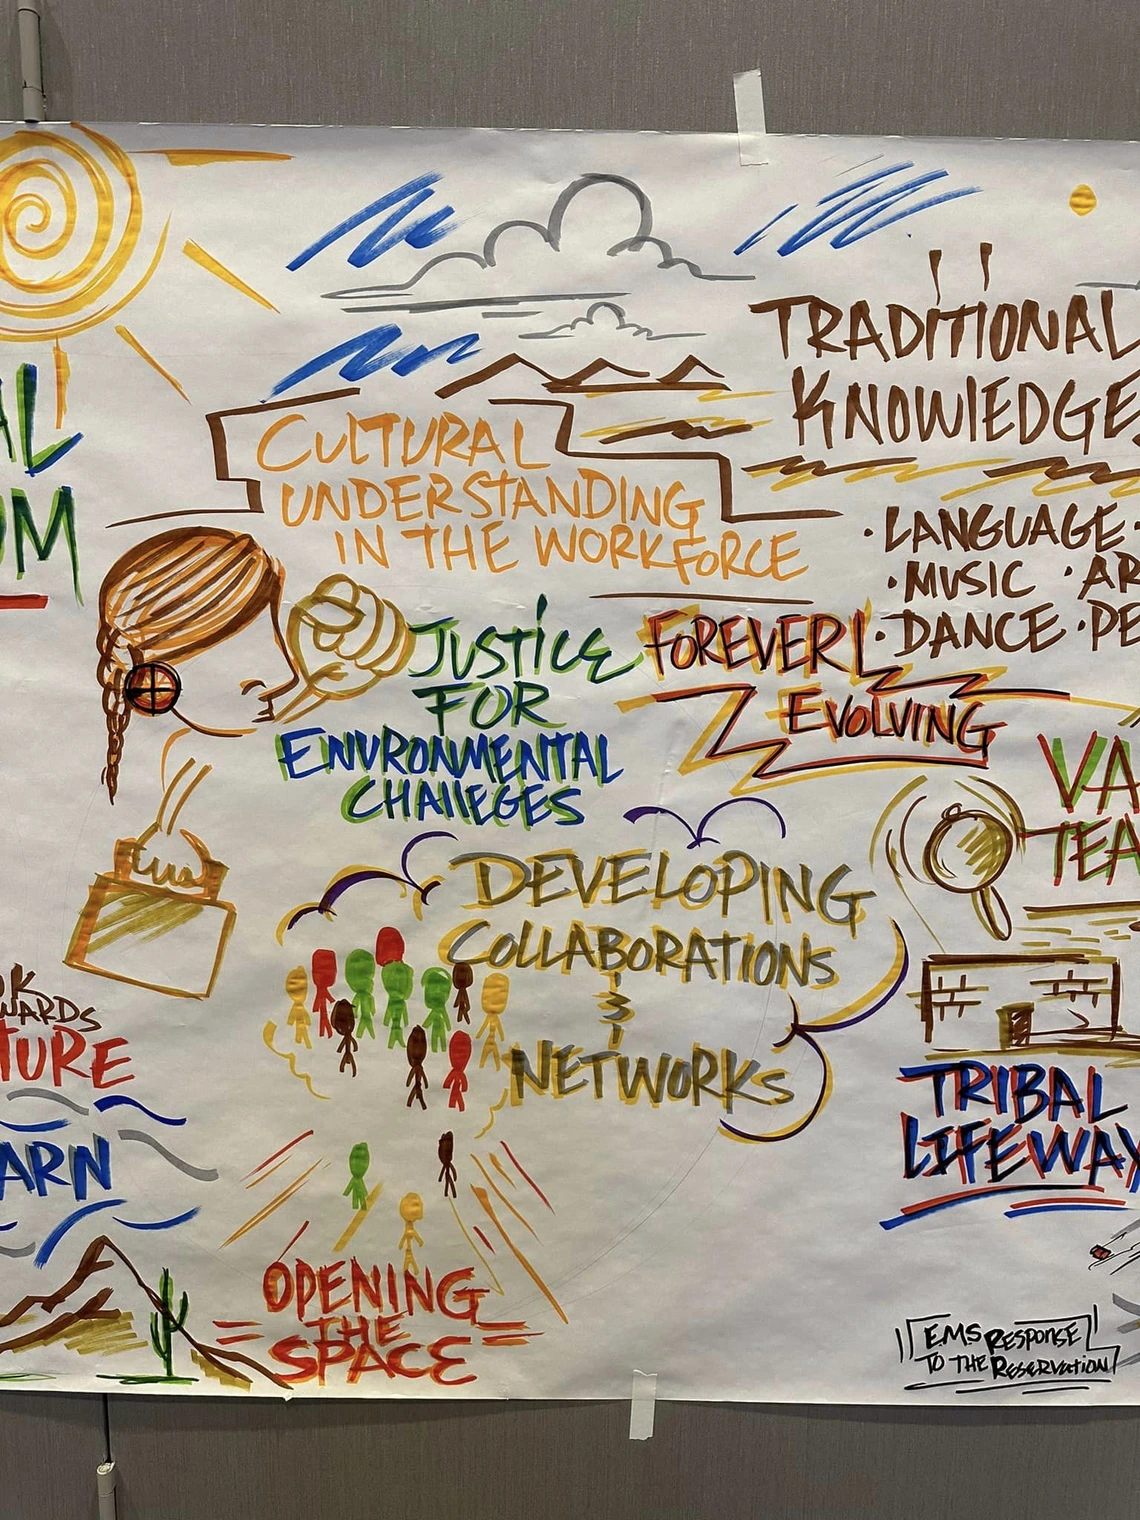 AL
UM
CULTURAL
UNDERSTANDING
IN THE WORKFORCE
TRADITIONAL
KNOWLEDGE
• LANGUAGE •
• MUSIC • AR
• DANCE • PE
JUSTICE
FOR
ENVIRONMENTAL
CHAllEGES
FOREVER
EVOLVING
VA
TEA
DEVELOPING
COLLABORATIONS
&
NETWORKS
OK
WARDS
TURE
ARN
TRIBAL
LIFEWAY
OPENING
THE
SPACE
EMS RESPONSE
TO THE RESERVATION